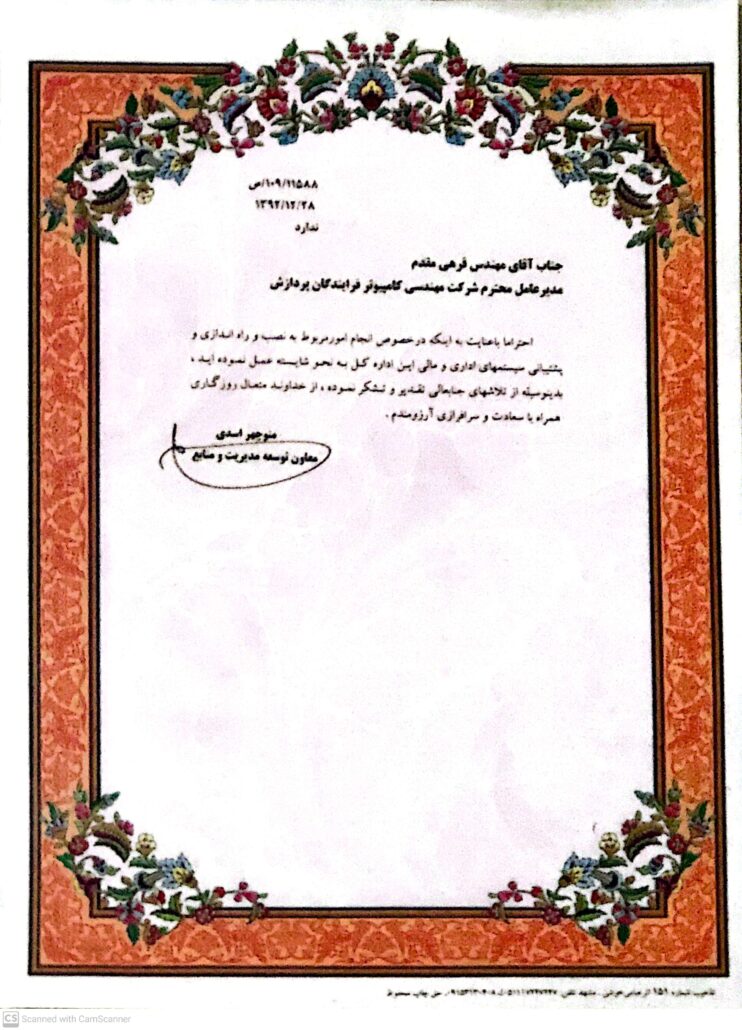 ۱۰۹/۱۱۵۸۸/ص
۱۳۹۲/۱۲/۲۸
ندارد
جناب آقای مهندس فرهی مقدم
مدیرعامل محترم شرکت مهندسی کامپیوتر فرایندگان پردازش
احتراما باعنایت به اینکه درخصوص انجام امورمربوط به نصب و راه اندازی و
پشتیبانی سیستمهای اداری و مالی این اداره کل به نحو شایسته عمل نموده اید ،
بدینوسیله از تلاشهای جنابعالی تقدیر و تشکر نموده ، از خداوند متعال روزگاری
همراه با سعادت و سرافرازی آرزومندم .
منوچهر اسدی
معاون توسعه مدیریت و منابع
تذهیب شماره ۱۵۱ مشهد تلفن: حق چاپ محفوظ
CS Scanned with CamScanner